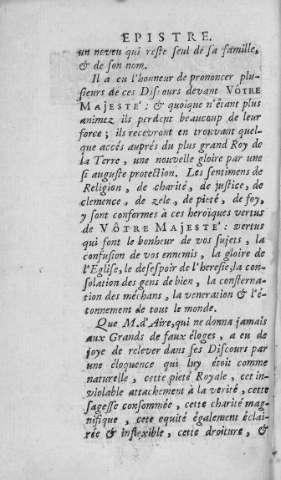 EPISTRE.
un neveu qui reste seul de sa famille,
& de son nom.
Il a eu l'honneur de prononcer plu-
sieurs de ces Discours devant VÔTRE
MAJESTE' : & quoique n'étant plus
animez ils perdent beaucoup de leur
force ; ils recevront en trouvant quel-
que accés auprés du plus grand Roy de
la Terre, une nouvelle gloire par une
si auguste protection. Les sentimens de
Religion, de charité, de justice, de
clemence, de zele, de pieté, de foy,
y sont conformes à ces heroïques vertus
de VÔTRE MAJESTE' : vertus
qui font le bonheur de vos sujets, la
confusion de vos ennemis, la gloire de
l'Eglise, le desespoir de l'heresie, la con-
solation des gens de bien, la consterna-
tion des méchans, la veneration & l'é-
tonnement de tout le monde.
Que M. d'Aire, qui ne donna jamais
aux Grands de faux éloges, a eu de
joye de relever dans ses Discours par
une éloquence qui luy étoit comme
naturelle, cette pieté Royale, cet in-
violable attachement à la verité, cette
sagesse consommée, cette charité mag-
nifique, cette equité également éclai-
rée & inflexible, cette droiture, &